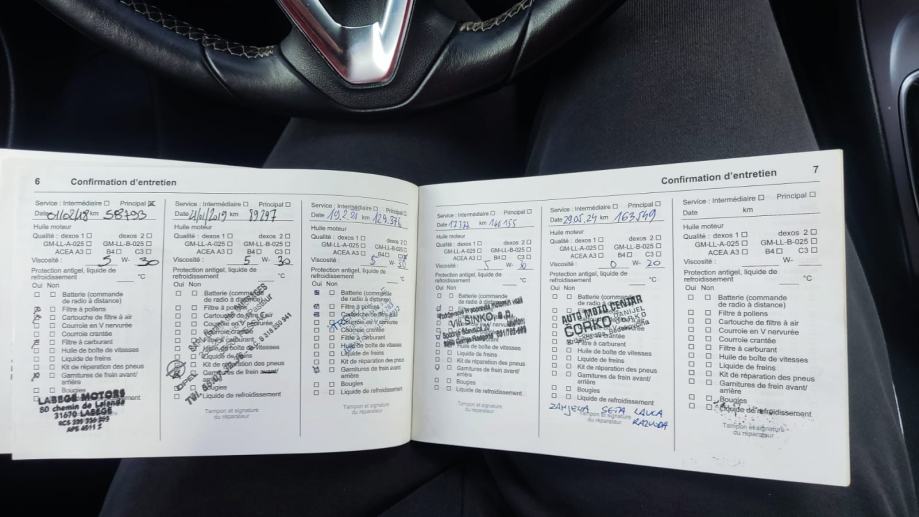 6 Confirmation d'entretien
Service : Intermédiaire Principal
Date 01/02/18 km 58793
Huile moteur
Qualité : dexos 1 dexos 2
GM-LL-A-025 GM-LL-B-025
ACEA A3 B4 C3
Viscosité : 5 W- 30
Protection antigel, liquide de
refroidissement °C
Oui Non
Batterie (commande
de radio à distance)
Filtre à pollens
Cartouche de filtre à air
Courroie en V nervurée
Courroie crantée
Filtre à carburant
Huile de boîte de vitesses
Liquide de freins
Kit de réparation des pneus
Garnitures de frein avant/
arrière
Bougies
LABEGE MOTORS
80 chemin de Lalande
31670 LABEGE
Service : Intermédiaire Principal
Date 2019 km 89297
Huile moteur
Qualité : dexos 1 dexos 2
GM-LL-A-025 GM-LL-B-025
ACEA A3 B4 C3
Viscosité : 5 W- 30
Protection antigel, liquide de
refroidissement °C
Oui Non
Batterie (commande
de radio à distance)
Filtre à pollens
Cartouche de filtre à air
Courroie en V nervurée
Courroie crantée
Filtre à carburant
Huile de boîte de vitesses
Liquide de freins
Kit de réparation des pneus
Garnitures de frein avant/
arrière
Bougies
Liquide de refroidissement
Tampon et signature
du réparateur
Service : Intermédiaire Principal
Date km
Huile moteur
Qualité : dexos 1 dexos 2
GM-LL-A-025 GM-LL-B-025
ACEA A3 B4 C3
Viscosité : 5 W- 30
Protection antigel, liquide de
refroidissement °C
Oui Non
Batterie (commande
de radio à distance)
Filtre à pollens
Cartouche de filtre à air
Courroie en V nervurée
Courroie crantée
Filtre à carburant
Huile de boîte de vitesses
Liquide de freins
Kit de réparation des pneus
Garnitures de frein avant/
arrière
Bougies
Liquide de refroidissement
Tampon et signature
du réparateur
Confirmation d'entretien 7
Service : Intermédiaire Principal
Date km
Huile moteur
Qualité : dexos 1 dexos 2
GM-LL-A-025 GM-LL-B-025
ACEA A3 B4 C3
Viscosité : 5 W- 30
Protection antigel, liquide de
refroidissement °C
Oui Non
Batterie (commande
de radio à distance)
Vili SINKO, s.p.
Filtre à carburant
Huile de boîte de vitesses
Liquide de freins
Kit de réparation des pneus
Garnitures de frein avant/
arrière
Bougies
Liquide de refroidissement
Tampon et signature
du réparateur
Service : Intermédiaire Principal
Date 29.05.24 km 163549
Huile moteur
Qualité : dexos 1 dexos 2
GM-LL-A-025 GM-LL-B-025
ACEA A3 B4 C3
Viscosité : 0 W- 20
Protection antigel, liquide de
refroidissement °C
Oui Non
Batterie (commande
de radio à distance)
AUTO MOTO CENTAR
ĆORKO
Huile de boîte de vitesses
Liquide de freins
Kit de réparation des pneus
Garnitures de frein avant/
arrière
Bougies
Liquide de refroidissement
Tampon et signature
du réparateur
ZAMJENA SETA LANCA
RAZVODA
Service : Intermédiaire Principal
Date km
Huile moteur
Qualité : dexos 1 dexos 2
GM-LL-A-025 GM-LL-B-025
ACEA A3 B4 C3
Viscosité : W-
Protection antigel, liquide de
refroidissement °C
Oui Non
Batterie (commande
de radio à distance)
Filtre à pollens
Cartouche de filtre à air
Courroie en V nervurée
Courroie crantée
Filtre à carburant
Huile de boîte de vitesses
Liquide de freins
Kit de réparation des pneus
Garnitures de frein avant/
arrière
Bougies
Liquide de refroidissement
Tampon et signature
du réparateur